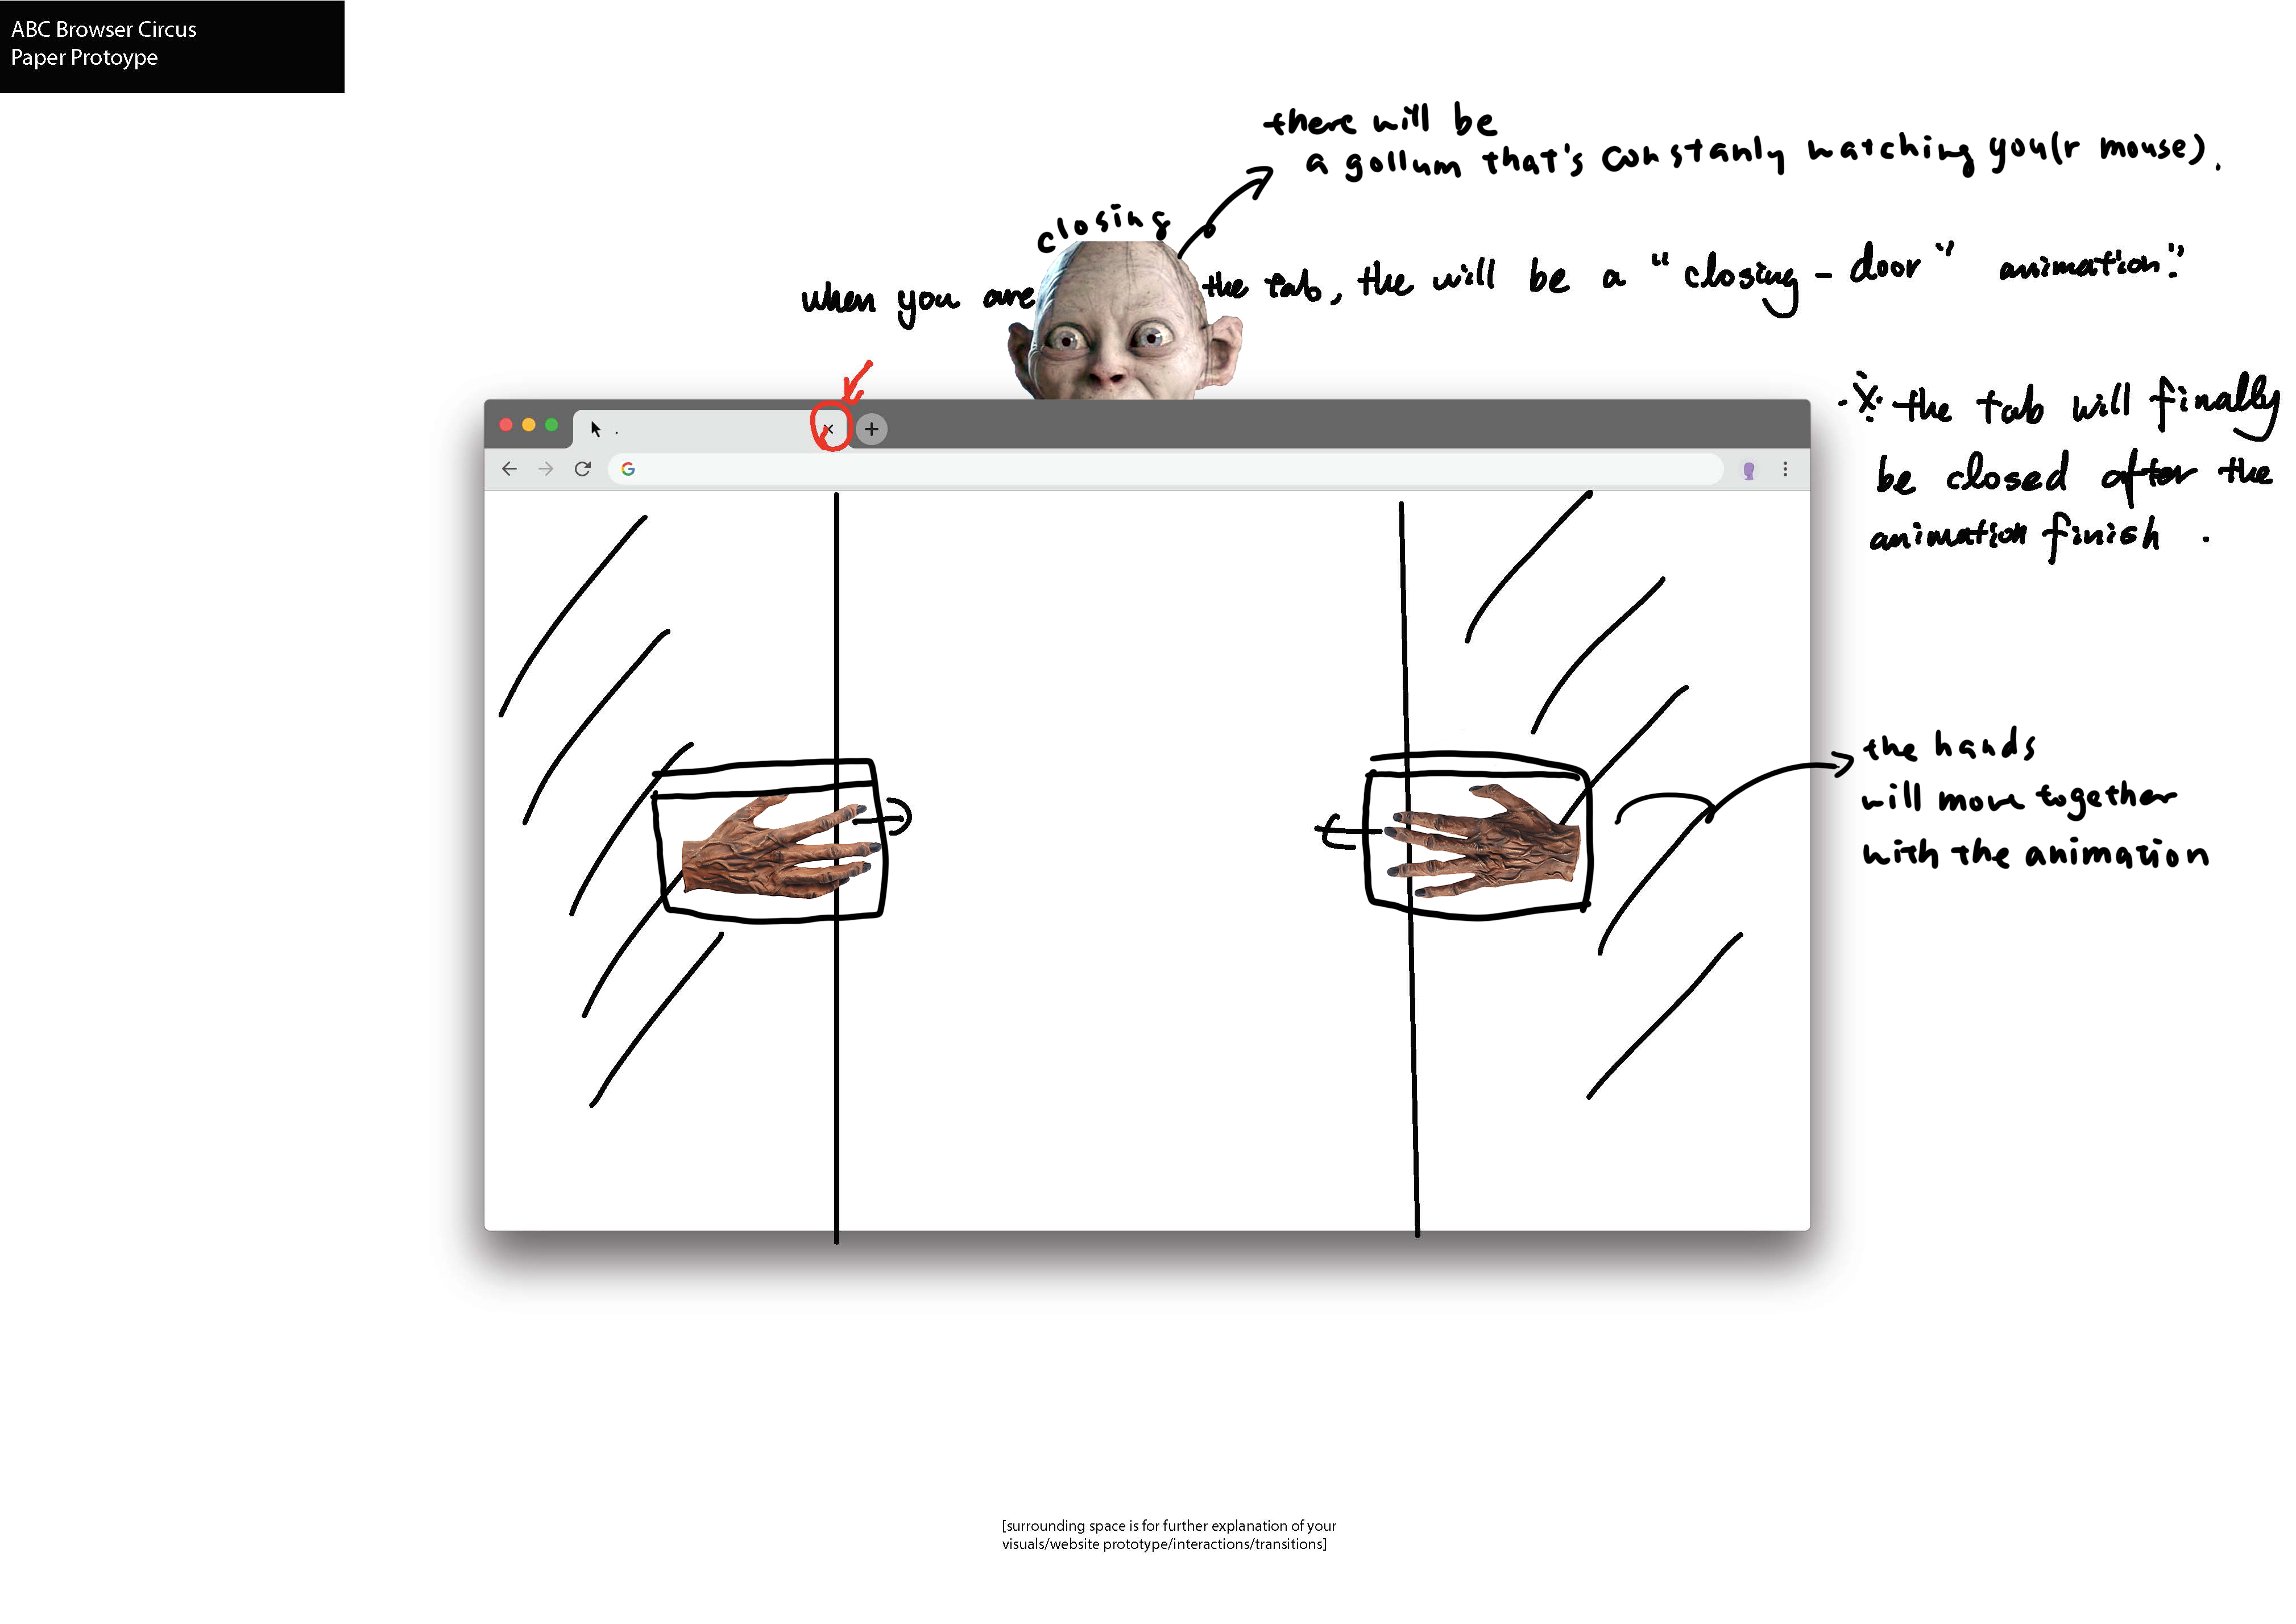 ABC Browser Circus
Paper Protoype
there will be
a gollum that's constanly watching you(r mouse).
closing
when you are the tab, the will be a "closing-door" animation."
※ the tab will finally
be closed after the
animation finish.
the hands
will move together
with the animation
[surrounding space is for further explanation of your
visuals/website prototype/interactions/transitions]